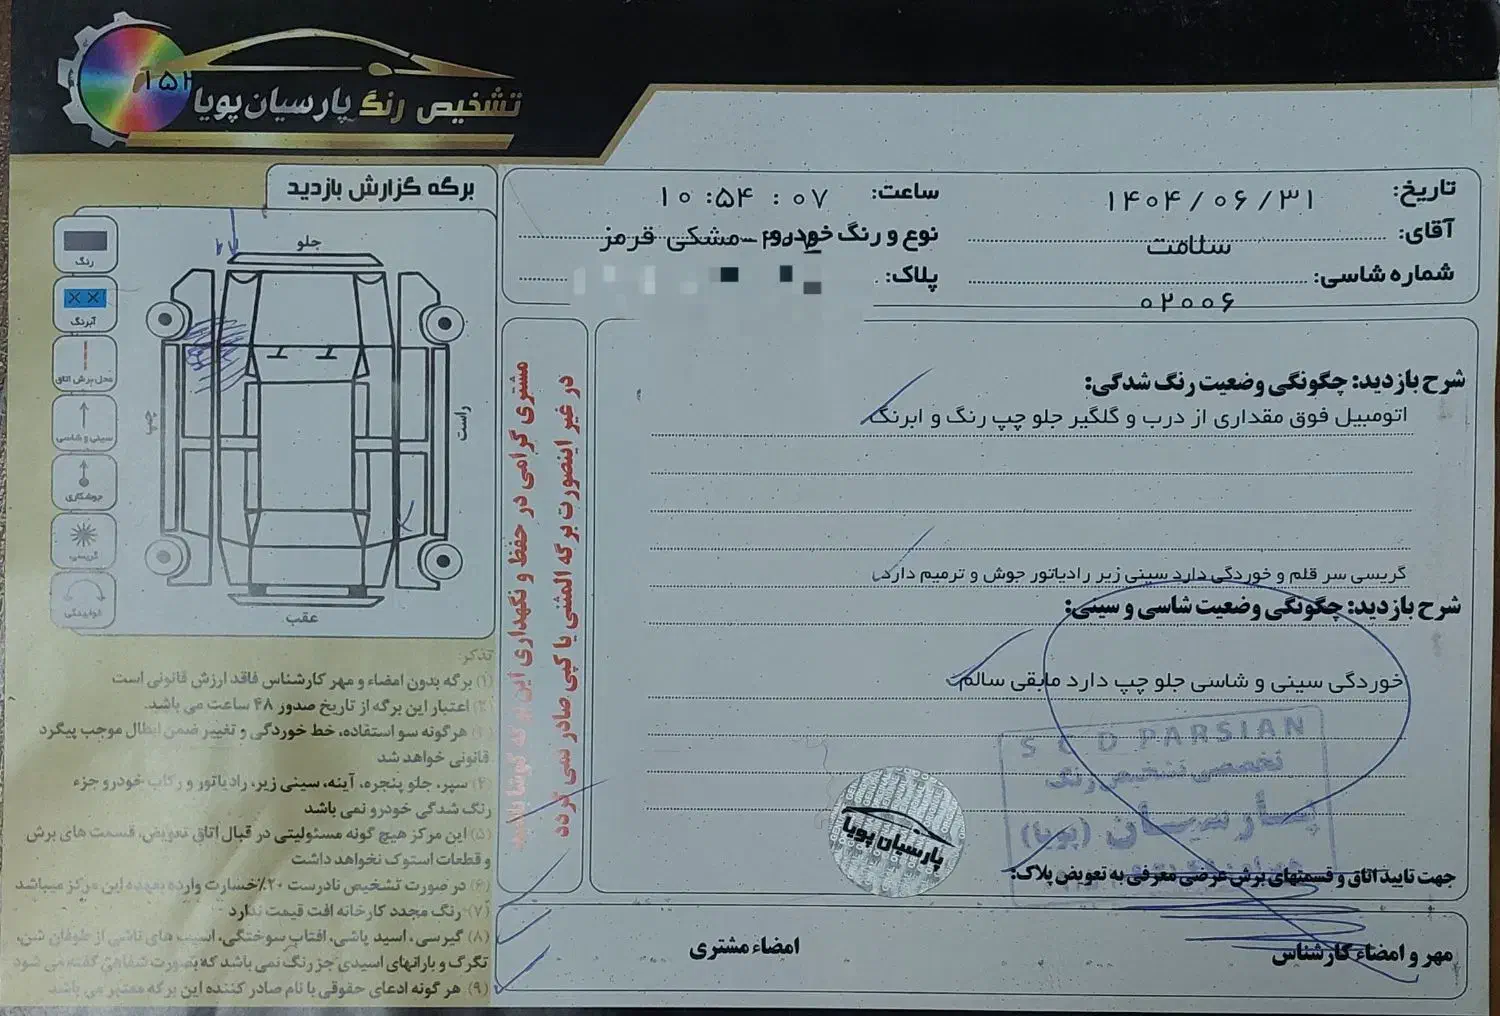 ۱۵۲
تشخیص رنگ پارسیان پویا
برگه گزارش بازدید
تاریخ: ۱۴۰۴/۰۶/۳۱
ساعت: ۱۰:۵۴ : ۰۷
آقای: سلامت
نوع و رنگ خودرو: مشکی قرمز
شماره شاسی: ۰۲۰۰۶
پلاک:
جلو
راست
چپ
عقب
رنگ
آبرنگ
محل برش اتاق
سینی و شاسی
جوشکاری
گریسی
خوابیدگی
مشتری گرامی در حفظ و نگهداری این برگه کوشا باشید
در غیر اینصورت برگه المثنی یا کپی صادر نمی گردد
شرح بازدید: چگونگی وضعیت رنگ شدگی:
اتومبیل فوق مقداری از درب و گلگیر جلو چپ رنگ و ابرنگ
گریسی سر قلم و خوردگی دارد سینی زیر رادیاتور جوش و ترمیم دارد.
شرح بازدید: چگونگی وضعیت شاسی و سینی:
خوردگی سینی و شاسی جلو چپ دارد مابقی سالم
S C D PARSIAN
تخصصی تشخیص رنگ
پارسیان (پویا)
پارسیان پویا
جهت تایید اتاق و قسمتهای برش عرضی معرفی به تعویض پلاک:
مهر و امضاء کارشناس
امضاء مشتری
تذکر:
۱) برگه بدون امضاء و مهر کارشناس فاقد ارزش قانونی است
۲) اعتبار این برگه از تاریخ صدور ۴۸ ساعت می باشد.
۳) هرگونه سو استفاده، خط خوردگی و تغییر ضمن ابطال موجب پیگرد
قانونی خواهد شد
۴) سپر، جلو پنجره، آینه، سینی زیر، رادیاتور و رکاب خودرو جزء
رنگ شدگی خودرو نمی باشد
۵) این مرکز هیچ گونه مسئولیتی در قبال اتاق تعویض، قسمت های برش
و قطعات استوک نخواهد داشت
۶) در صورت تشخیص نادرست ۲۰٪ خسارت وارده بعهده این مرکز میباشد
۷) رنگ مجدد کارخانه افت قیمت ندارد
۸) گیرسی، اسید پاشی، افتاب سوختگی، اسیب های ناشی از طوفان شن،
تگرگ و بارانهای اسیدی جز رنگ نمی باشد که بصورت شفاهی گفته می شود
۹) هر گونه ادعای حقوقی با نام صادر کننده این برگه معتبر می باشد